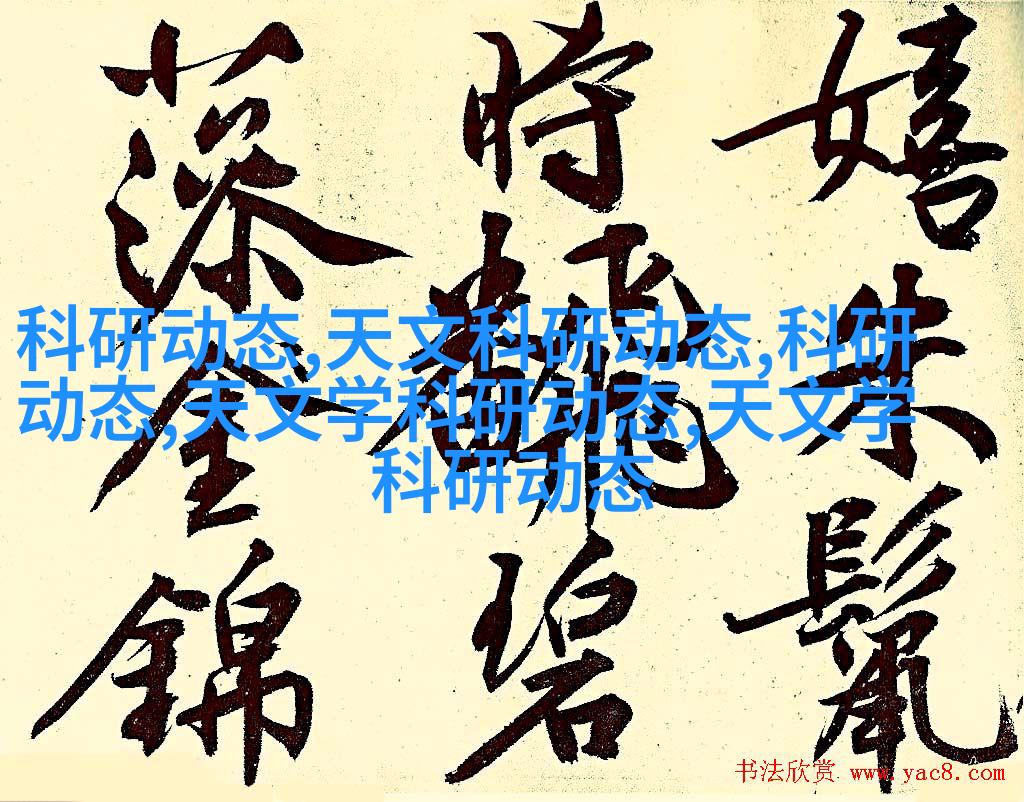 嬉朱鬣
時飜碧
藻金錦
科研动态,天文科研动态,科研
动态,天文学科研动态,天文学
科研动态
书法欣赏 www.yac8.com